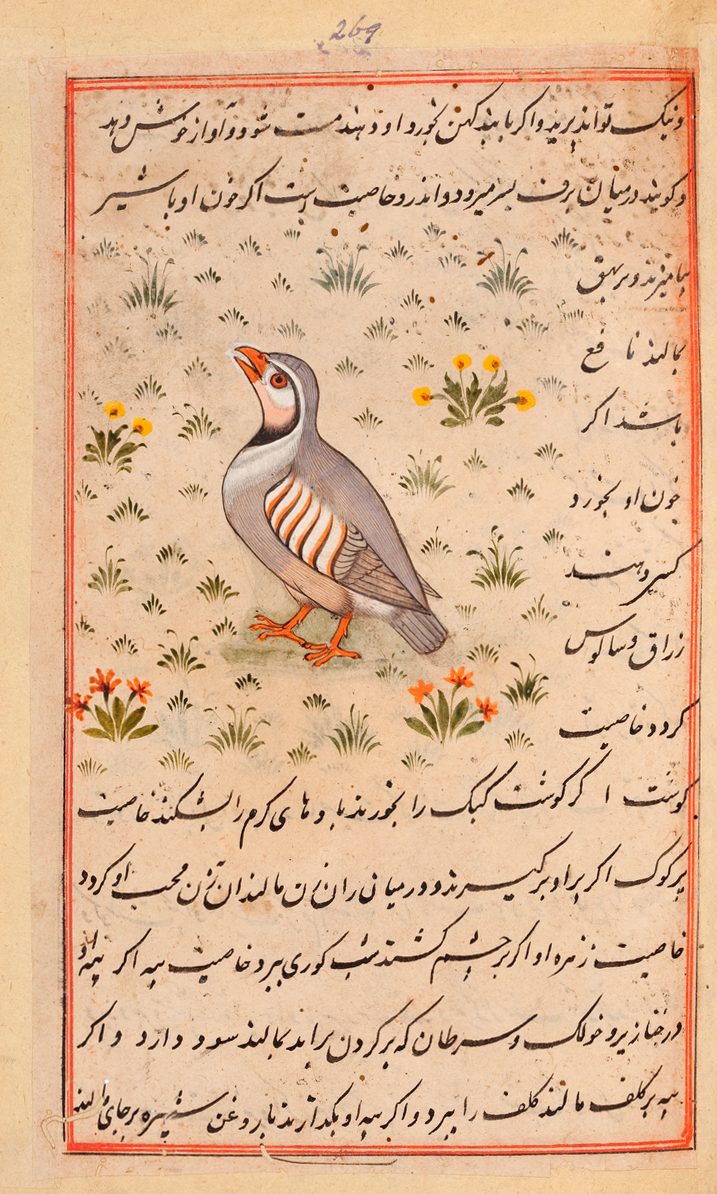 269
و نیک تواند پرید و اکر بابند کهن بخورد او دهند مست شود و آواز خوش دهد
و کویند در میان برف بسر میرود و اندرو خاصیت است اکر خون او با شیر
بیامیزند و بر بهق
بمالند نافع
باشد اکر
خون او بخورد
کسی دهند
زراق و سالوس
کردد خاصیت
کوشت اکر کوشت کبک را بخورند بادهای کرم را بشکند خاصیت
پر کوک اکر پر او برکیرند و در میان ران زن مالند آن زن محب او کردد
خاصیت زهره او اکر بر چشم کشند شب کوری ببرد خاصیت پیه اکر پیه او
در خنازیر و خولک و سرطان که بر کردن براید بمالند سود دارد و اکر
پیه بر کلف مالند کلف را ببرد و اکر پیه او بکدازند با روغن شهپره بر جای مالند